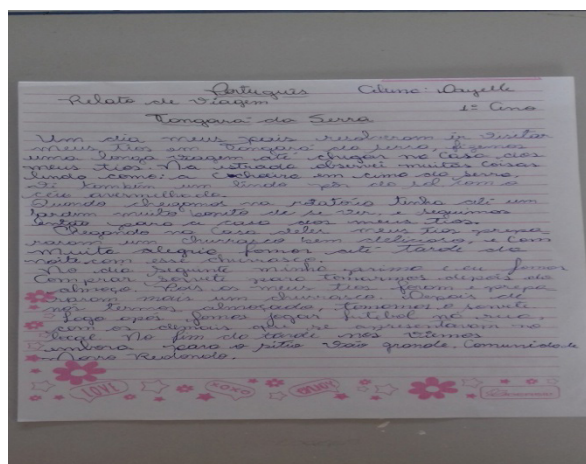 Português Aluna: Dayelle
Relato de Viagem 1º Ano
Tangará da Serra
Um dia meus pais resolveram ir visitar
meus tios em Tangará da serra, fizemos
uma longa viagem até chegar na casa dos
meus tios. Na estrada observei muitas coisas
lindas como: Cachoeira em cima da serra,
Vi também um lindo pôr do sol com o
céu avermelhado.
Quando chegamos na rotatória tinha até um
jardim muito bonito de se ver, e seguimos
então para a casa dos meus tios.
Chegando na casa deles meus tios prepa
raram um churrasco bem delicioso, e com
muita alegria fomos até tarde da
noite com esse churrasco.
No dia seguinte minha prima e eu fomos
comprar sorvete para tomarmos depois do
almoço. Pois os meus tios foram e prepa
raram mais um churrasco. Depois de
nós termos almoçado, tomamos o sorvete
logo após fomos jogar futebol na rua,
com os demais que se apresentaram no
local. No fim da tarde nós viemos
embora para o sítio Vão grande. Comunidade
Morro Redondo.
LOVE XOXO